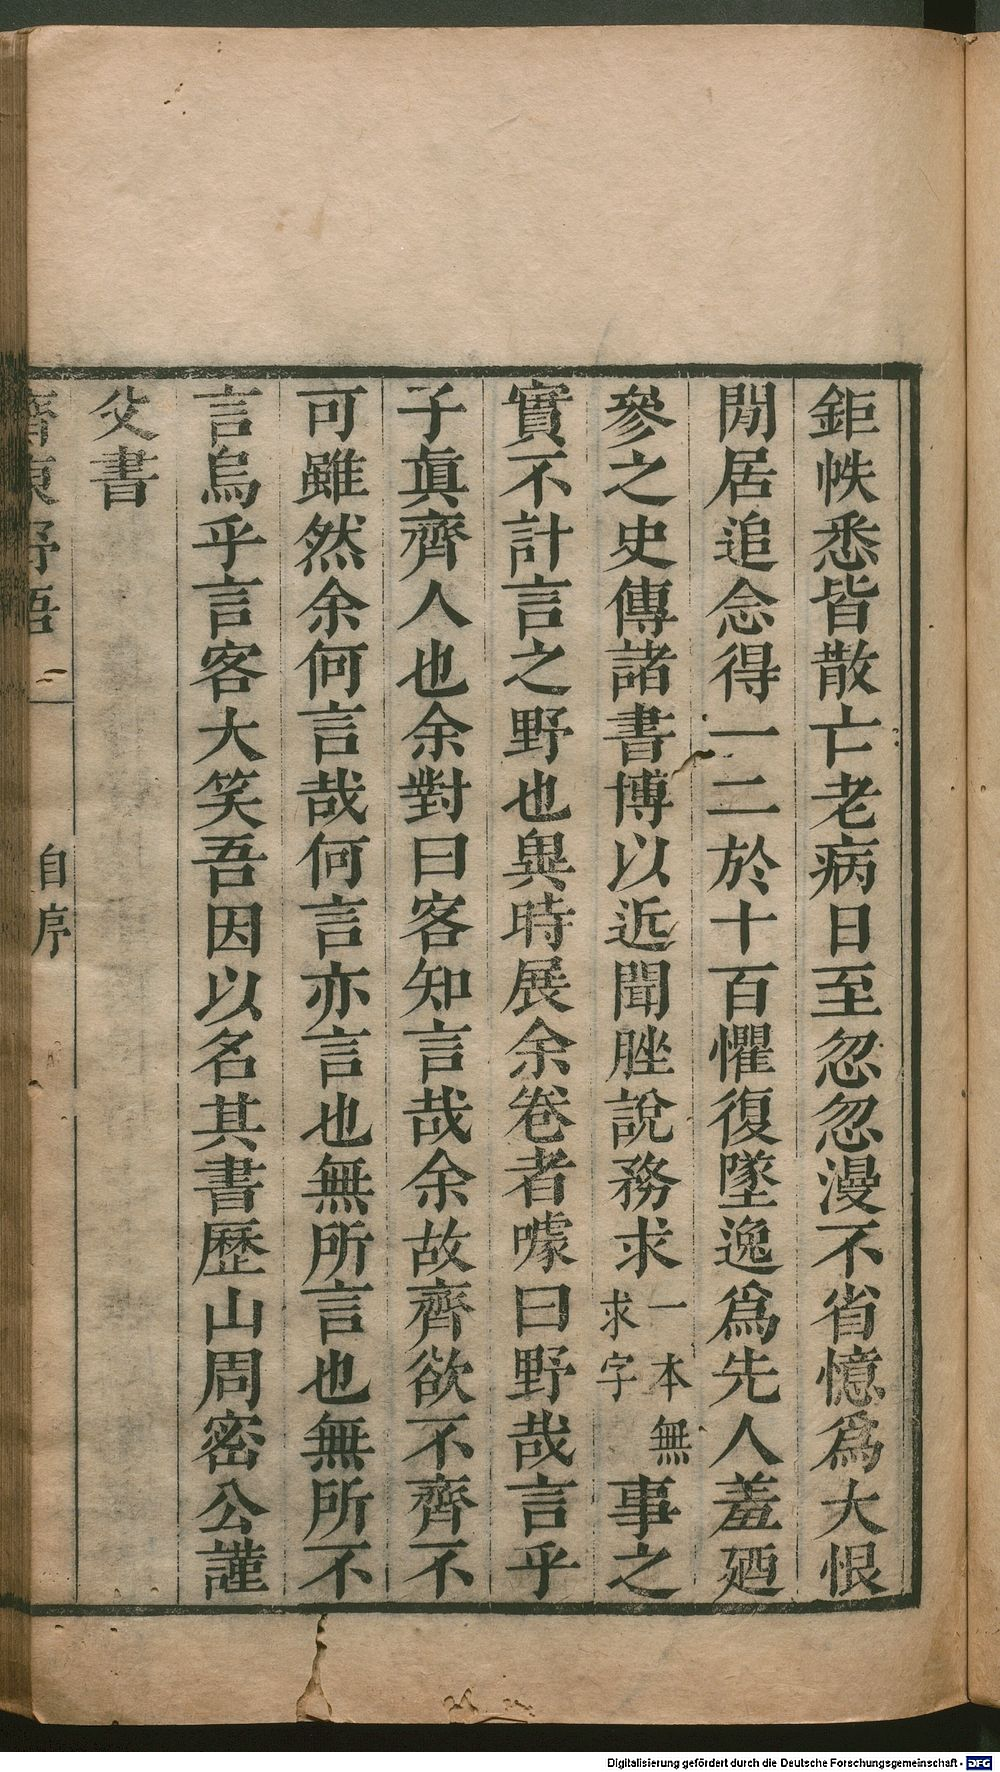 鉅帙悉皆散亡老病日至忽忽漫不省憶爲大恨
閒居追念得一二於十百懼復墜逸爲先人羞廼
參之史傳諸書博以近聞脞說務求一本無求字事之
實不計言之野也異時展余卷者噱曰野哉言乎
子眞齊人也余對曰客知言哉余故齊欲不齊不
可雖然余何言哉何言亦言也無所言也無所不
言烏乎言客大笑吾因以名其書歷山周密公謹
父書
齊東野語
自序
Digitalisierung gefördert durch die Deutsche Forschungsgemeinschaft - DFG